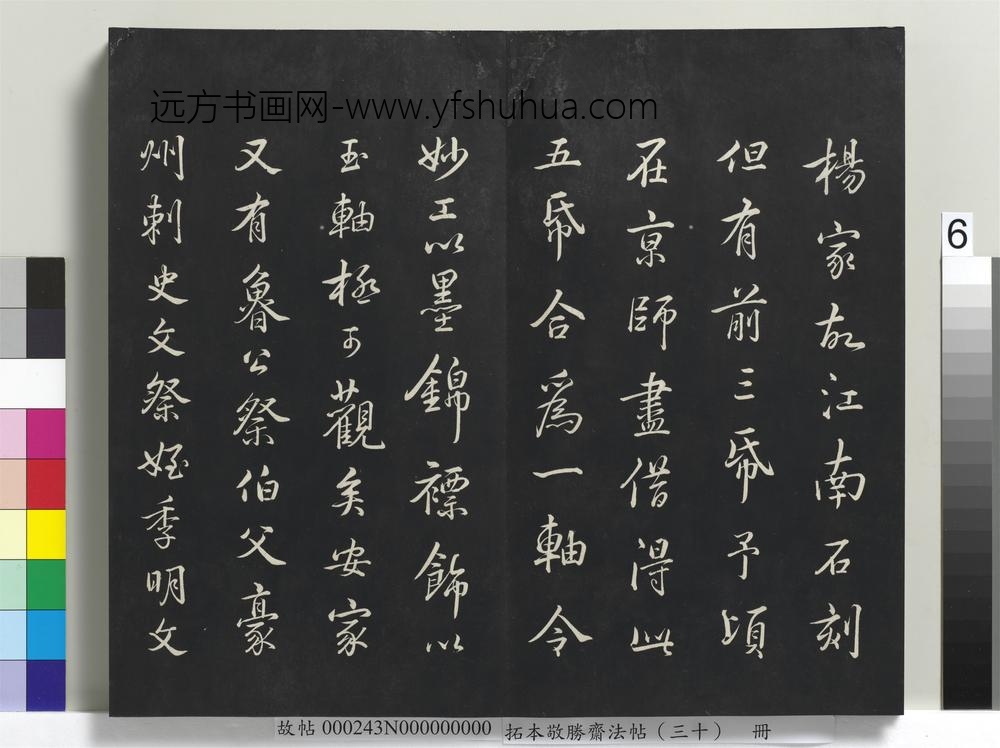 远方书画网-www.yfshuhua.com
楊家故江南石刻
但有前三帋予頃
在京師盡借得此
五帋合爲一軸令
妙工以墨錦褾飾以
玉軸極可觀矣安家
又有魯公祭伯父豪
州刺史文祭姪季明文
6
故帖 000243N000000000
拓本敬勝齋法帖（三十） 冊